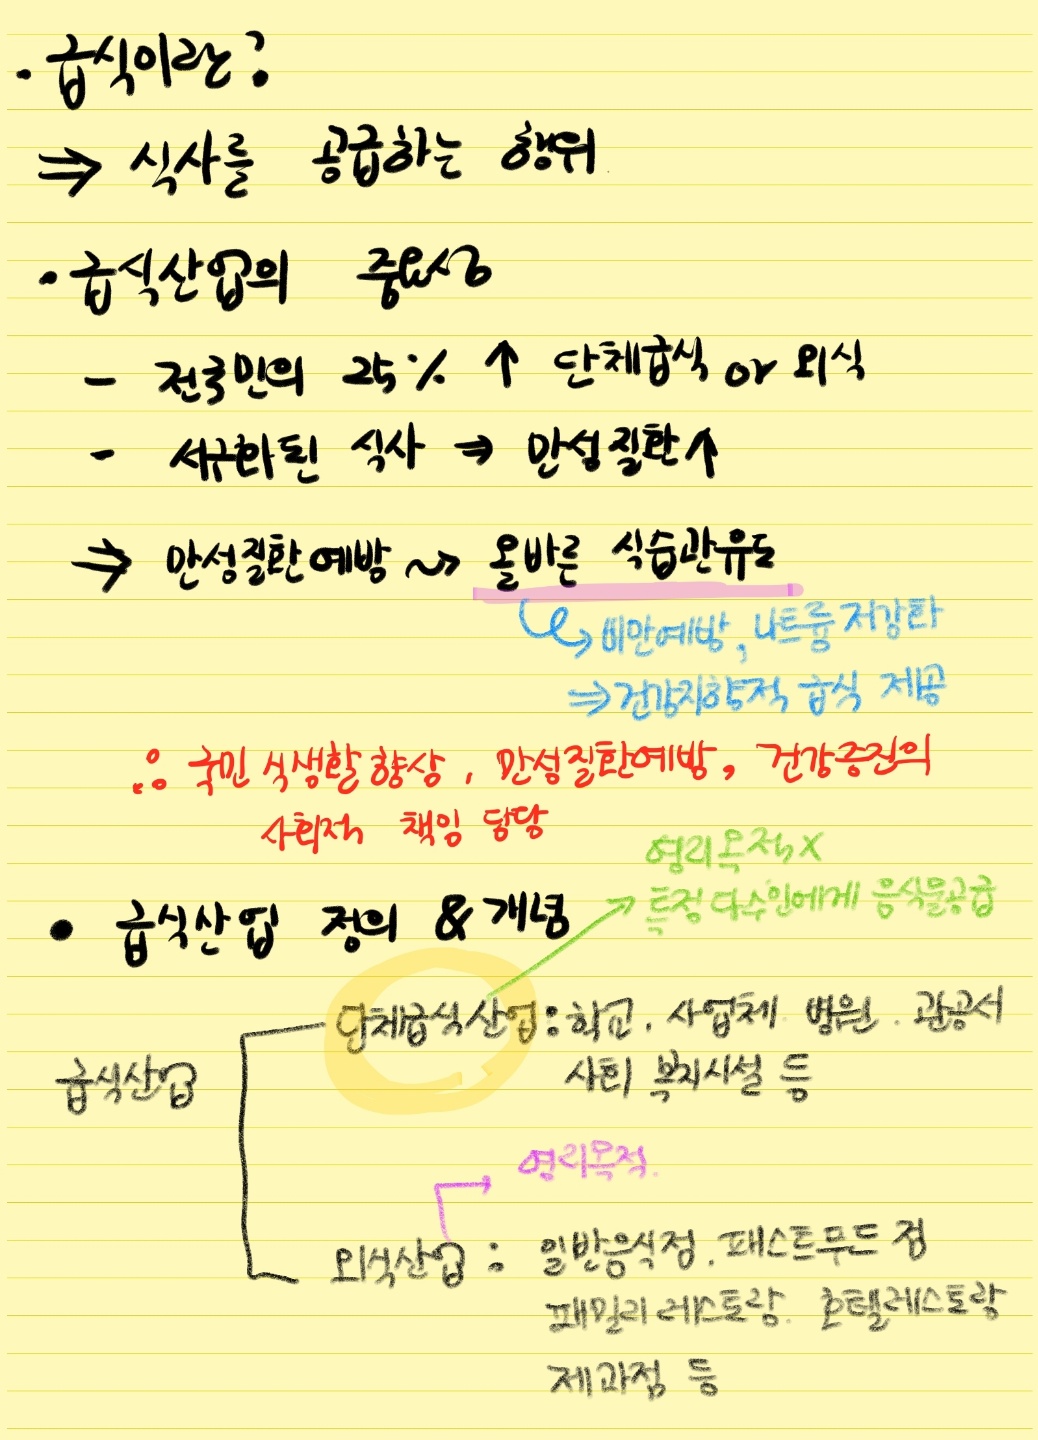 · 급식이란?
⇒ 식사를 공급하는 행위
· 급식산업의 중요성
- 전국민의 25% ↑ 단체급식 or 외식
- 서구화된 식사 → 만성질환↑
⇒ 만성질환예방 ⤳ 올바른 식습관유도
↪ 비만예방, 나트륨저감화
⇒ 건강지향적 급식 제공
∴ 국민 식생활향상, 만성질환예방, 건강증진의
사회적 책임 담당
영리목적 X
특정다수인에게 음식물공급
• 급식산업 정의 & 개념
단체급식산업: 학교. 사업체. 병원. 관공서
급식산업
사회 복지시설 등
영리목적.
외식산업: 일반음식점. 패스트푸드점
패밀리레스토랑. 호텔레스토랑
제과점 등